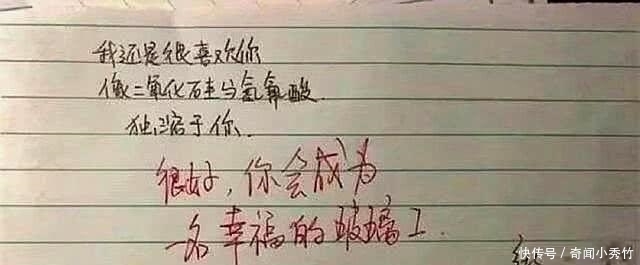 我还是很喜欢你
像二氧化硅与氢氟酸
独溶于你.
很好,你会成为
一名幸福的玻璃工.
快传号/奇闻小秀竹